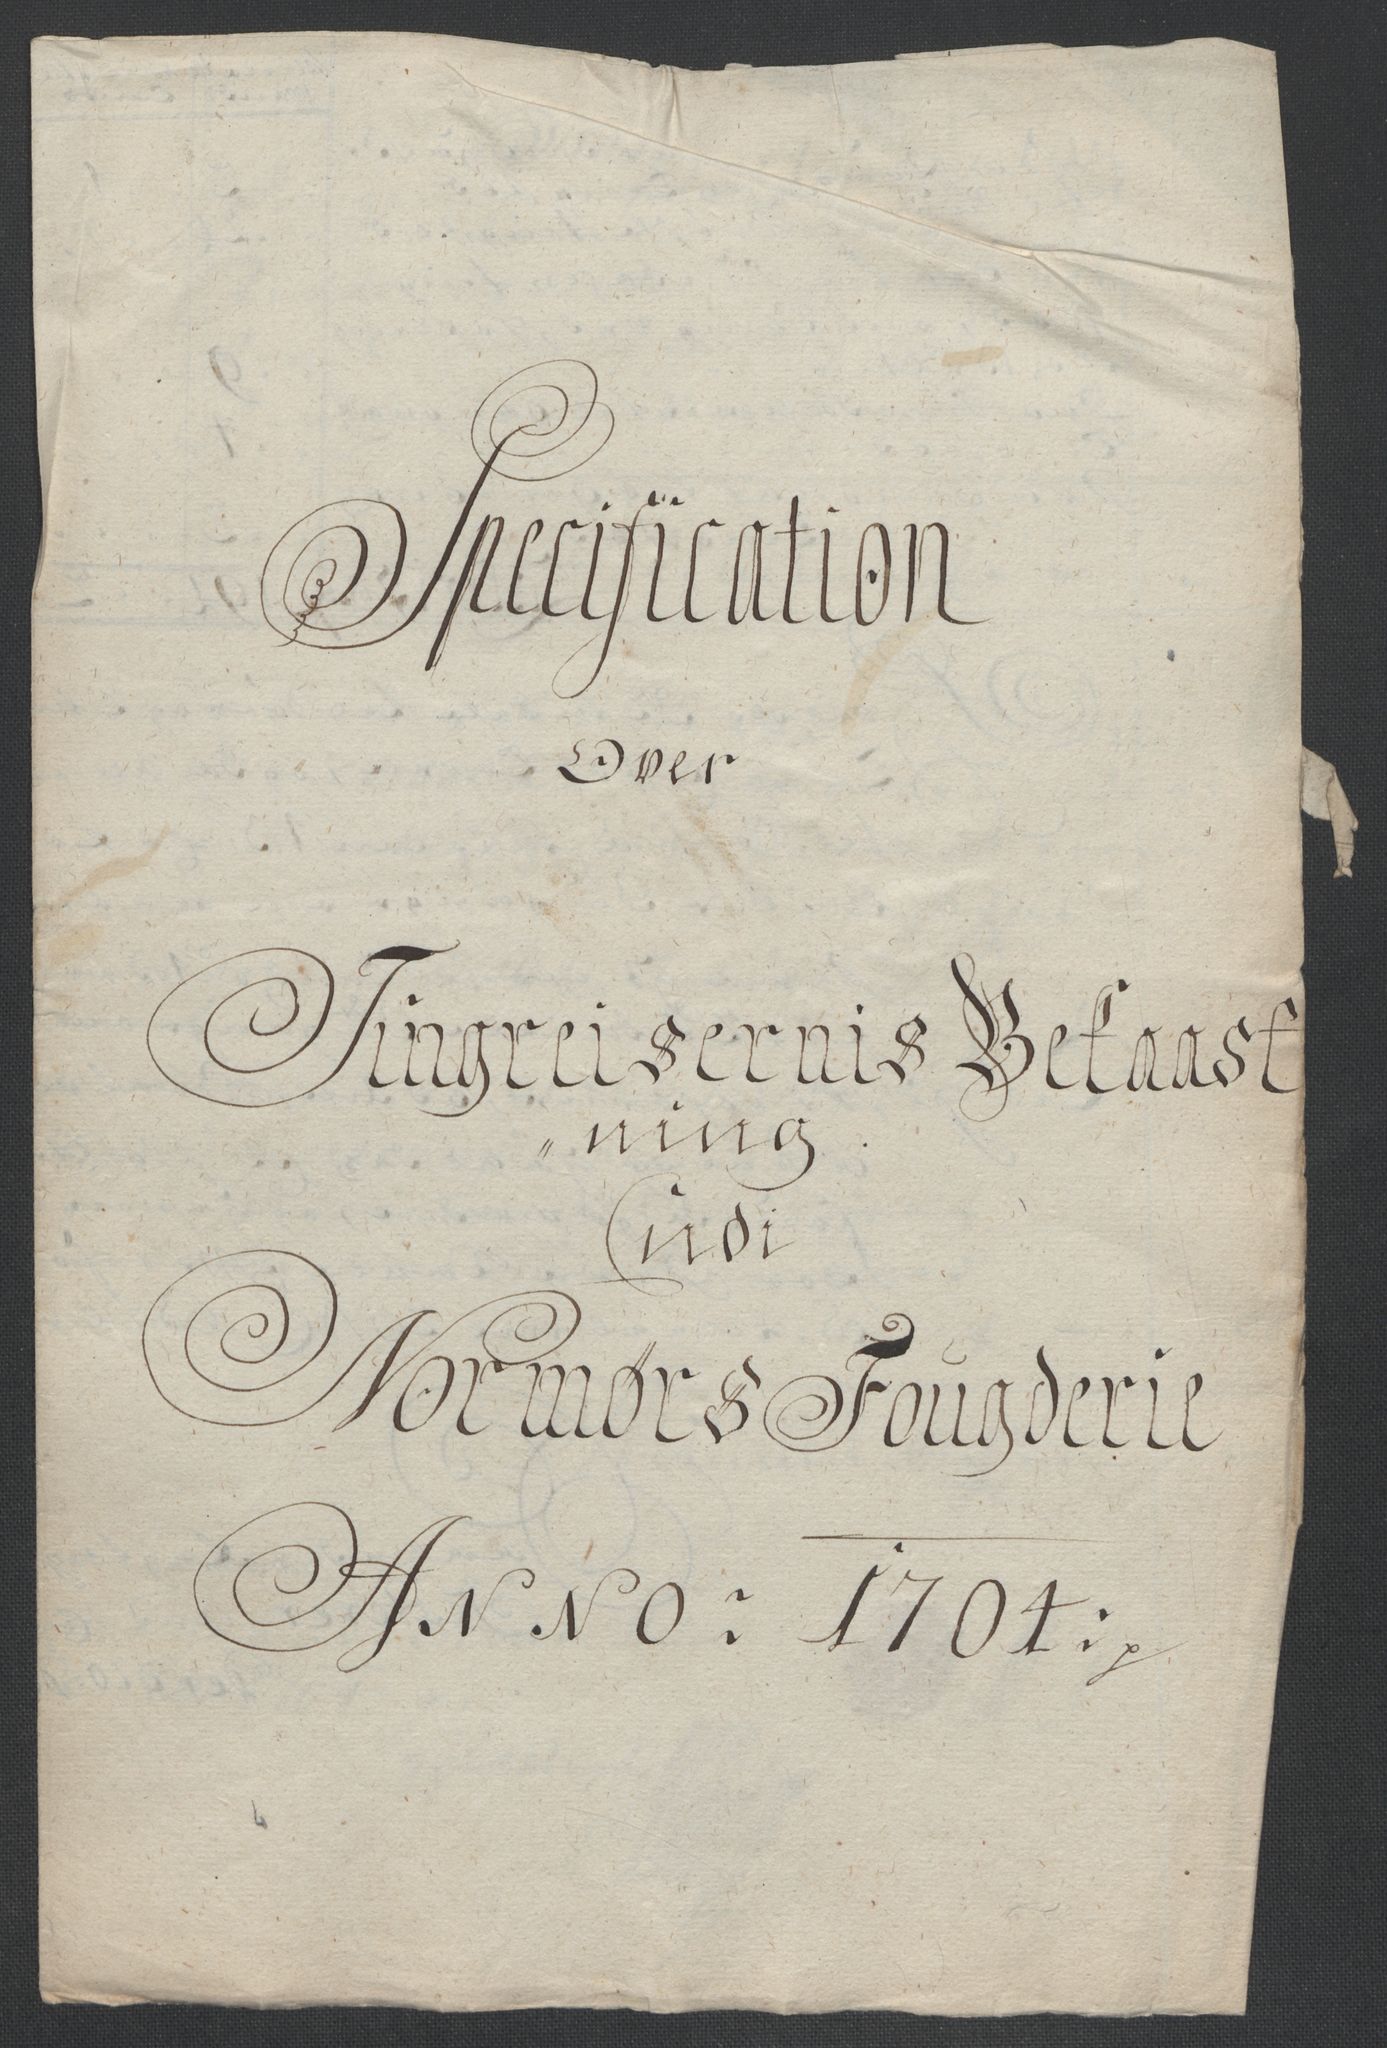 Specification
Over
Tingreisernis Bekaast
"ning
indi
Normørs Fougderie
ANNO: 1704: